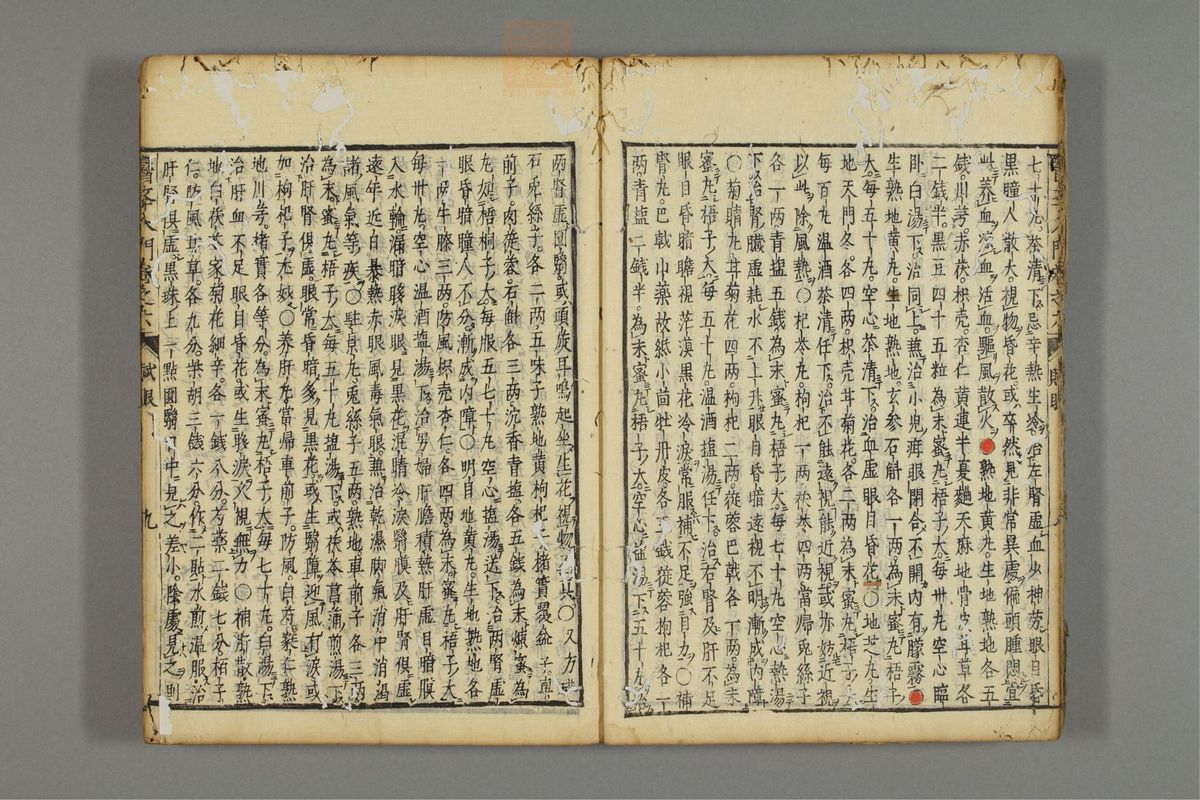 七十丸茶清下忌辛熱生冷治左腎虛血少神勞眼目昏
黑瞳人散大視物昏花或卒然見非常異處偏頭腫悶宜
此養血涼血活血驅風散火熟地黃丸生地熟地各五
錢川芎赤茯枳壳杏仁黃連半夏麯天麻地骨皮甘草各
二錢半黑豆四十五粒為末蜜丸梧子大每卅丸空心臨
卧白湯下治同上兼治小兒疳眼閉合不開內有朦霧
生熟地黃丸生地熟地玄參石斛各一兩為末蜜丸梧子
大每五十丸空心茶清下治血虛眼目昏花〇地芝丸生
地天門冬各四兩枳壳甘菊花各二兩為末蜜丸梧子大
每百丸溫酒茶清任下治不能遠視能近視或亦妨近視
以此除風熱〇杞苓丸枸杞一兩茯苓四兩當歸兔絲子
各一兩青塩五錢為末蜜丸梧子大每七十丸空心熱湯
下治腎臟虛耗水不上升眼目昏暗遠視不明漸成內障
〇菊睛丸甘菊花四兩枸杞二兩蓯蓉巴戟各一兩為末
蜜丸梧子大每五十丸溫酒塩湯任下治右腎及肝不足
眼目昏暗瞻視茫漠黑花冷淚常服補不足強目力〇補
腎丸巴戟山藥故紙小茴牡丹皮各一錢蓯蓉枸杞各一
兩青塩二錢半為末蜜丸梧子大空心塩湯下五十丸治
兩腎虛圓翳或頭旋耳鳴起坐生花視物〇又方
石兔絲子各二兩五味子熟地黃枸杞楮實覆盆子車
前子肉蓯蓉石斛各三兩沉香青塩各五錢為末煉蜜為
丸如梧桐子大每服五七十丸空心塩湯送下治兩腎虛
眼昏暗瞳人不分漸成內障〇明目地黃丸生地熟地各
一兩牛膝三兩防風枳壳杏仁各四兩為末蜜丸梧子大
每卅丸空心溫酒塩湯下治男婦肝膽積熱肝虛目暗膜
入水輪漏暗睽淚眼見黑花混睛冷淚翳膜及肝腎俱虛
遠年近日暴熱赤眼風毒氣眼兼治乾濕脚氣消中消渴
諸風氣等疾〇駐景丸兔絲子五兩熟地車前子各三兩
為末蜜丸梧子大每五十丸塩湯下或茯苓菖蒲煎湯下
治肝腎俱虛眼常昏暗多見黑花或生翳障迎風有淚或
加枸杞子尤妙〇養肝丸當歸車前子防風白芍蕤仁熟
地川芎楮實各等分為末蜜丸梧子大每七十丸白湯下
治肝血不足眼目昏花或生睽淚久視無力〇補肝散熟
地白茯苓家菊花細辛各一錢八分芍藥二錢七分柏子
仁防風甘草各九分柴胡三錢六分作二貼水煎溫服治
肝腎俱虛黑珠上一點圓翳日中見之差小陰處見之則
試眼
九